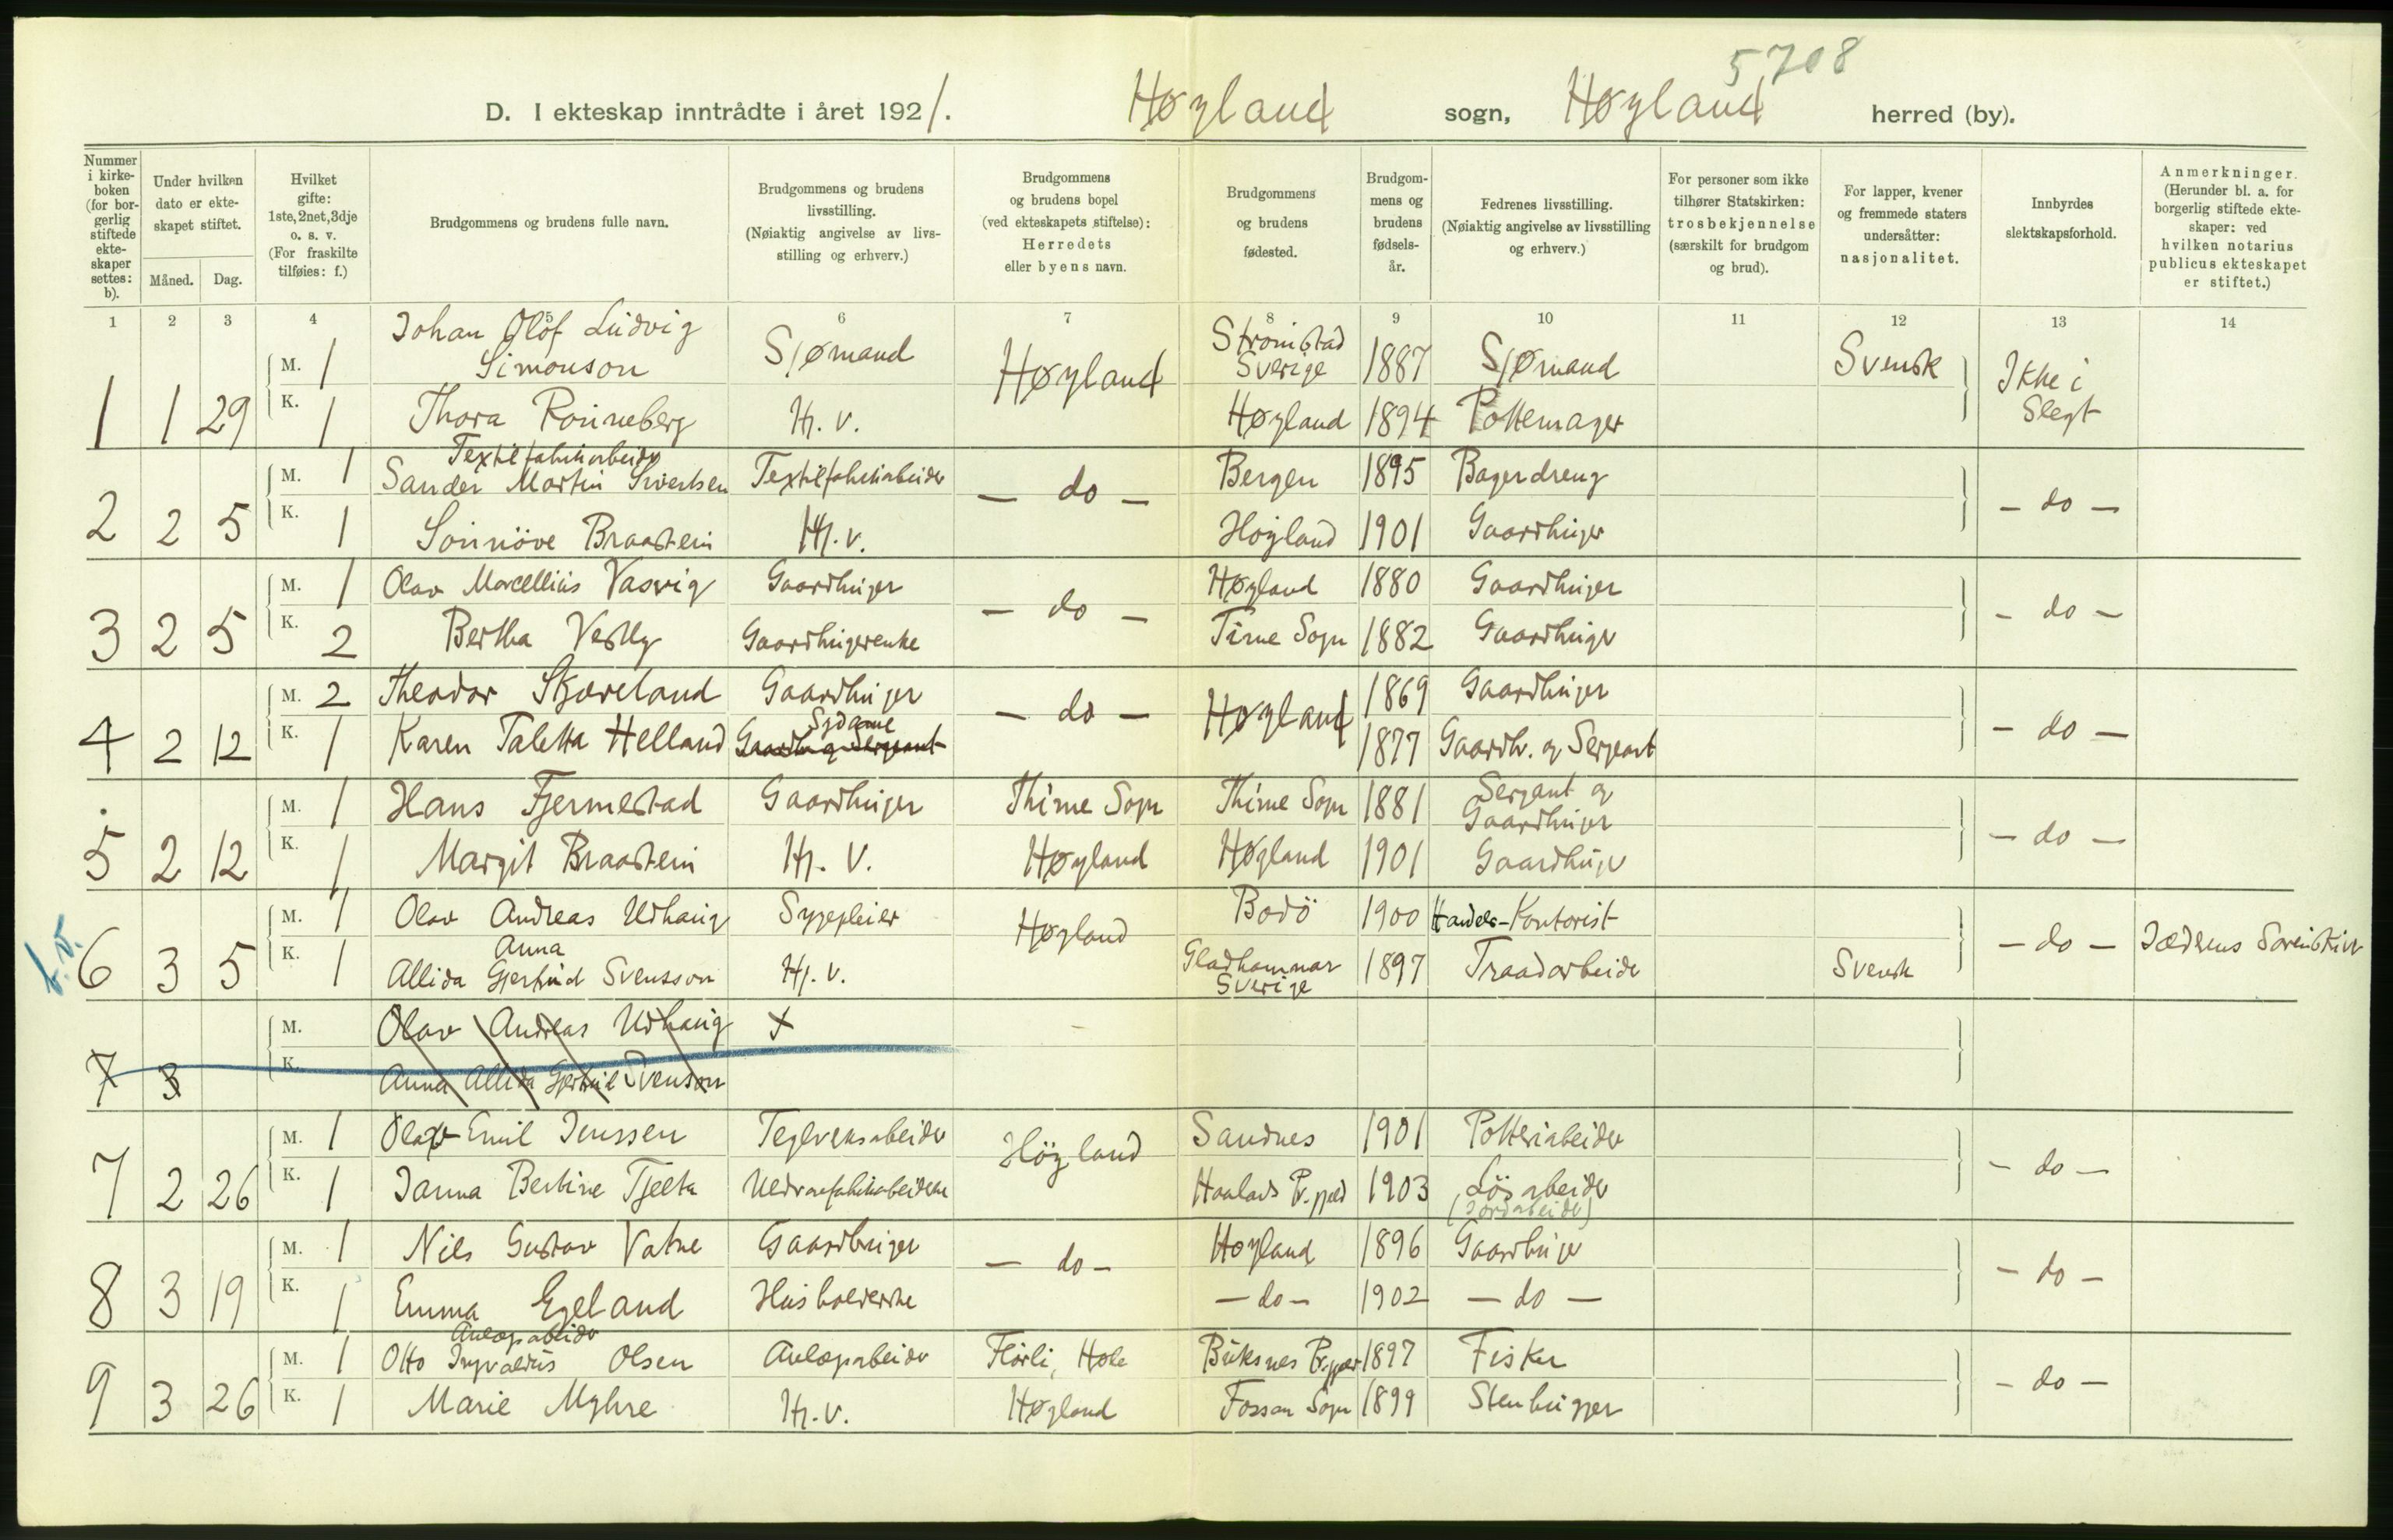 5708
D. I ekteskap inntrådte i året 1921. Høyland sogn, Høyland herred (by).
Nummer i kirkeboken (for borgerlig stiftede ekteskaper settes: b).
Under hvilken dato er ekteskapet stiftet.
Måned. Dag.
Hvilket gifte: 1ste, 2net, 3dje o. s. v. (For fraskilte tilføies: f.)
Brudgommens og brudens fulle navn.
Brudgommens og brudens livsstilling. (Nøiaktig angivelse av livsstilling og erhverv.)
Brudgommens og brudens bopel (ved ekteskapets stiftelse): Herredets eller byens navn.
Brudgommens og brudens fødested.
Brudgommens og brudens fødselsår.
Fedrenes livsstilling. (Nøiaktig angivelse av livsstilling og erhverv.)
For personer som ikke tilhører Statskirken: trosbekjennelse (særskilt for brudgom og brud).
For lapper, kvener og fremmede staters undersåtter: nasjonalitet.
Innbyrdes slektskapsforhold.
Anmerkninger. (Herunder bl. a. for borgerlig stiftede ekteskaper: ved hvilken notarius publicus ekteskapet er stiftet.)
1 2 3 4 5 6 7 8 9 10 11 12 13 14
M. 1 Johan Olof Ludvig Simonson Sjømand Høyland Strømstad Sverige 1887 Sjømand Svensk Ikke i Slegt
1 1 29 K. 1 Thora Rønneberg H. v. Høyland 1894 Pottemager
Textilfabrikarbeider
M. 1 Sander Martin Sivertsen Textilfabrikarbeider — do — Bergen 1895 Bagerdreng — do —
2 2 5 K. 1 Sønnöve Braastein H. v. Høyland 1901 Gaardbruger
M. 1 Olav Marcellius Vasvig Gaardbruger — do — Høyland 1880 Gaardbruger — do —
3 2 5 K. 2 Bertha Vestly Gaardbrugerenke Time Sogn 1882 Gaardbruger
M. 2 Theodor Skjæveland Gaardbruger — do — Høyland 1869 Gaardbruger — do —
4 2 12 K. 1 Karen Taletta Helland Sydame 1877 Gaardbr. og Sergeant
M. 1 Hans Fjermestad Gaardbruger Thime Sogn Thime Sogn 1881 Sergant og Gaardbruger — do —
5 2 12 K. 1 Margit Braastein H. V. Høyland Høyland 1901 Gaardbruger
M. 1 Olav Andreas Udhaug Sygepleier Høyland Bodö 1900 Handels-Kontorist — do —
6 3 5 K. 1 Allida Anna Gjertrud Svensson H. v. Gladhammar Sverige 1897 Traadarbeider Svensk
M. Olav Andreas Udhaug x
7 3 K. Anna Allida Gjertrud Svenson
M. 1 Olav Emil Jenssen Teglverksarbeider Höyland Sandnes 1901 Potteriarbeider — do —
7 2 26 K. 1 Janna Bertine Tjelta Uldvarefabrikarbeiderske Haalands Pr.gjeld 1903 Lösarbeider (Jordarbeider)
M. 1 Nils Gustav Vatne Gaardbruger — do — Høyland 1896 Gaardbruger — do —
8 3 19 K. 1 Emma Egeland Husholderske — do — 1902 — do —
Anlægsarbeider
M. 1 Otto Ingvaldus Olsen Anlægsarbeider Flörli, Hole Buksnes Pr.gjeld 1897 Fisker — do —
9 3 26 K. 1 Marie Myhre H. v. Høyland Fossan Sogn 1899 Stenhugger